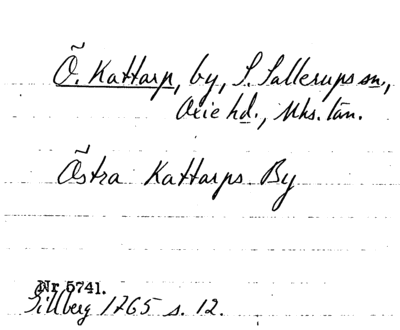 Ö. Kattarp, by, S. Sallerups sn.,
Oxie hd., Mhs. län.
Östra Kattarps By
Nr 5741.
Gillberg 1765 s. 12.